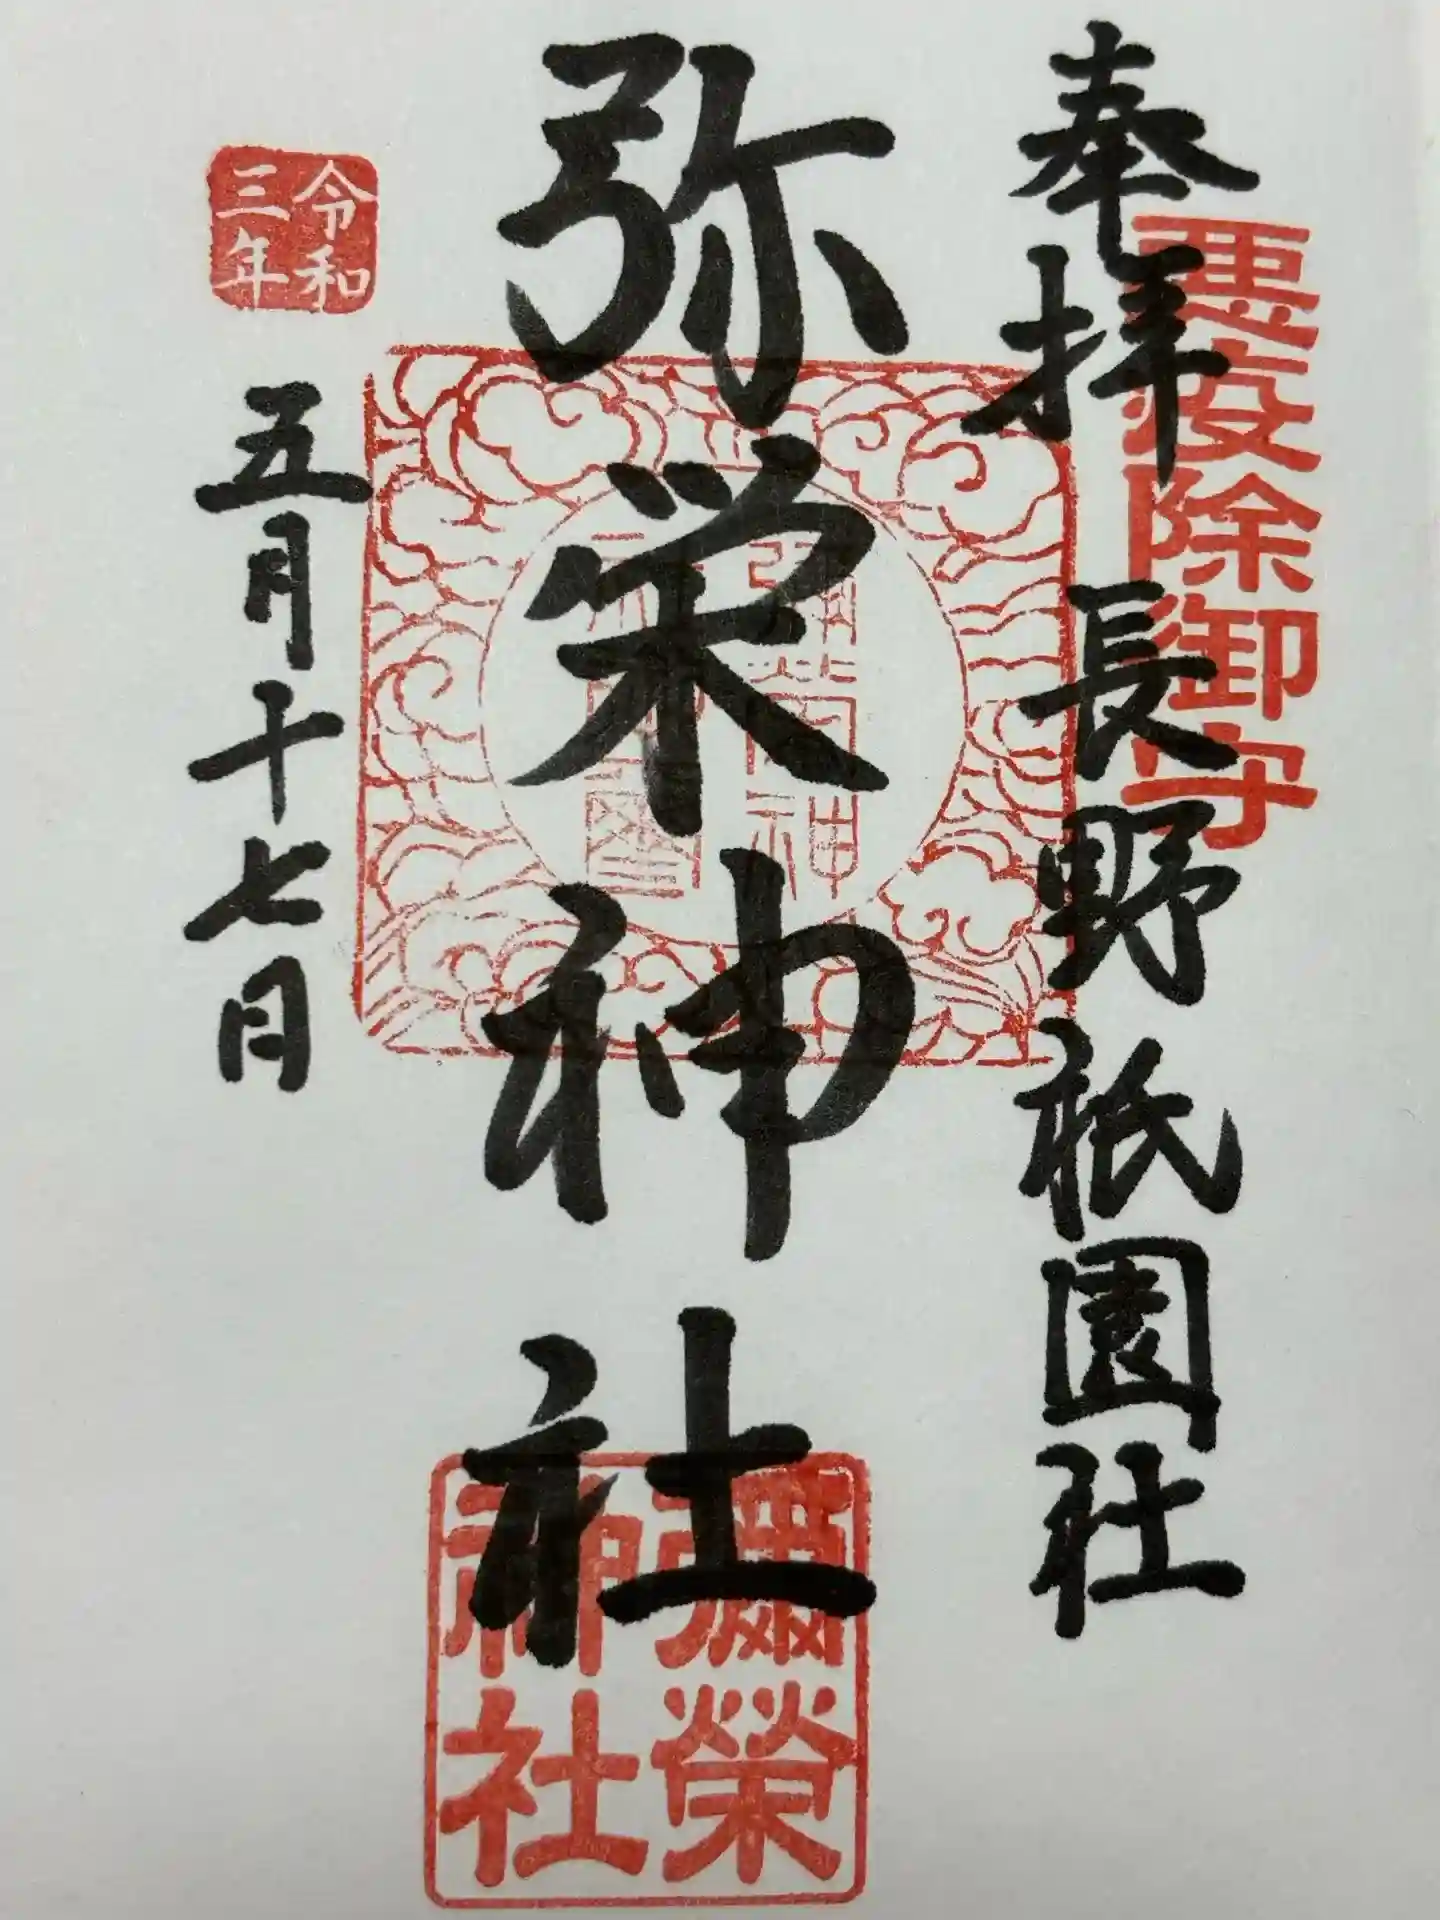 悪疫除御守
奉拝 長野祇園社
弥栄神社
彌榮
神社
令和
三年
五月十七日